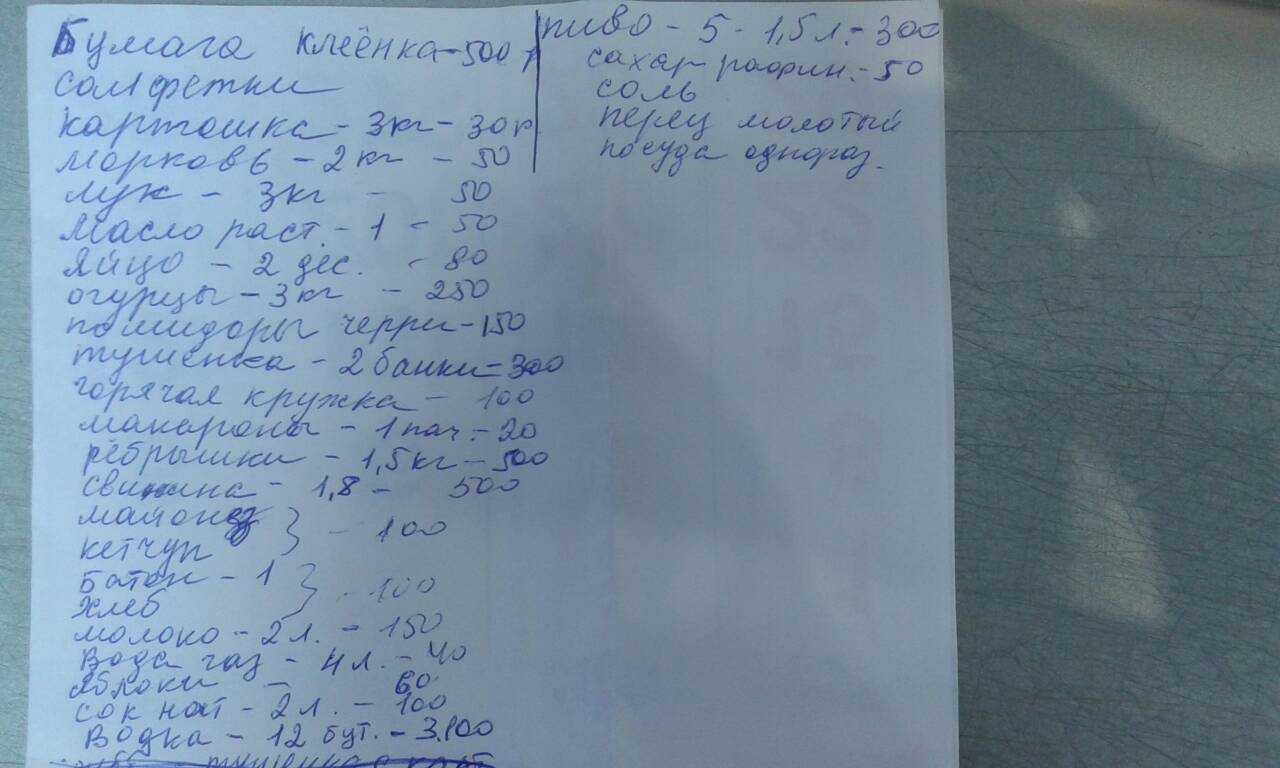 Бумага клеёнка - 500 р
салфетки
картошка - 3кг - 30р
морковь - 2 кг - 50
лук - 3кг - 50
Масло раст. - 1 - 50
Яйцо - 2 дес. - 80
огурцы - 3кг - 250
помидоры черри - 150
тушёнка - 2 банки - 300
горячая кружка - 100
макароны - 1 пач. - 20
рёбрышки - 1,5 кг - 500
свинина - 1,8 - 500
майонез
кетчуп } - 100
Батон - 1
хлеб } - 100
молоко - 2 л. - 150
Вода газ - 4 л. - 40
яблоки - 60
сок нат - 2 л. - 100
Водка - 12 бут. - 3.100
тушенка
пиво - 5 - 1,5 л. - 300
сахар рафин. - 50
соль
перец молотый
посуда однораз.